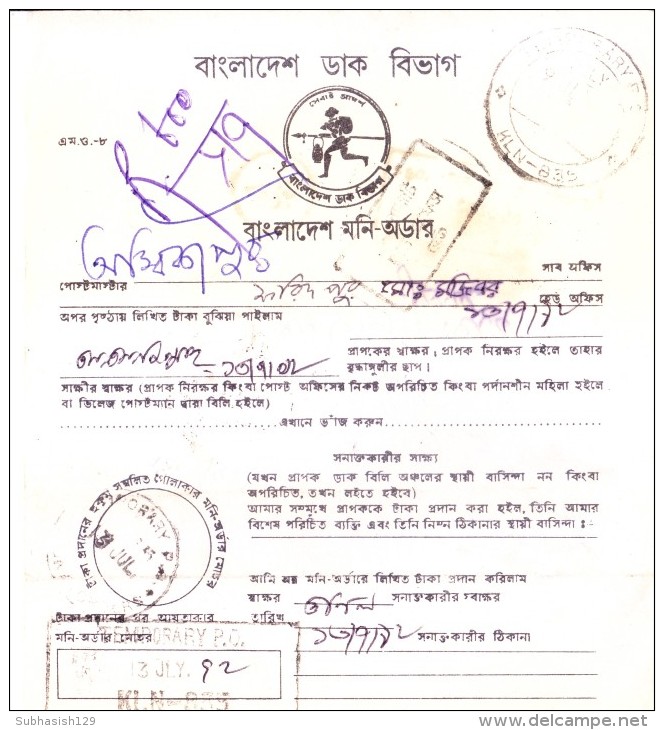 বাংলাদেশ ডাক বিভাগ
এম.ও.-৮
সেবাই আদর্শ
বাংলাদেশ ডাক বিভাগ
বাংলাদেশ মনি-অর্ডার
KLN-835
অম্বিকাপুর
সাব অফিস
পোস্টমাস্টার
ফরিদপুর
হেড অফিস
অপর পৃষ্ঠায় লিখিত টাকা বুঝিয়া পাইলাম
১৩/৭/৯২
১৩/৭/৯২
প্রাপকের স্বাক্ষর। প্রাপক নিরক্ষর হইলে তাহার
বৃদ্ধাঙ্গুলীর ছাপ।
সাক্ষীর স্বাক্ষর (প্রাপক নিরক্ষর কিংবা পোস্ট অফিসের নিকট অপরিচিত কিংবা পর্দানশীন মহিলা হইলে
বা ভিলেজ পোস্টম্যান দ্বারা বিলি হইলে)
এখানে ভাঁজ করুন
সনাক্তকারীর সাক্ষ্য
(যখন প্রাপক ডাক বিলি অঞ্চলের স্থায়ী বাসিন্দা নন কিংবা
অপরিচিত, তখন লইতে হইবে)
আমার সম্মুখে প্রাপককে টাকা প্রদান করা হইল, তিনি আমার
বিশেষ পরিচিত ব্যক্তি এবং তিনি নিম্ন ঠিকানার স্থায়ী বাসিন্দা ঃ-
টাকা প্রদানের হুকুম সম্বলিত গোলাকার মনি-অর্ডার মোহর
আমি অত্র মনি-অর্ডারে লিখিত টাকা প্রদান করিলাম
স্বাক্ষর
সনাক্তকারীর স্বাক্ষর
টাকা প্রদানের পর আয়তাকার
মনি-অর্ডার মোহর
তারিখ
১৩/৭/৯২
সনাক্তকারীর ঠিকানা
TEMPORARY P.O.
13 JLY. 92
KLN-835
Subhasish129
delcampe.net